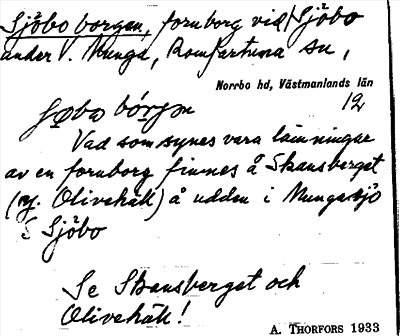 Sjöbo borgen, fornborg vid Sjöbo
under V. Munga, Romfartuna sn,
Norrbo hd, Västmanlands län
12
Vad som synes vara lämningar
av en fornborg finnes å Skansberget
Olivehäll) å udden i Mungasjö
Sjöbo
Se Skansberget och
Olivehäll!
A. THORFORS 1933